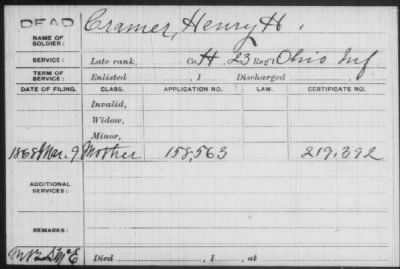 DEAD
NAME OF SOLDIER: Cramer, Henry H.
SERVICE: Late rank, Co. H, 23 Reg't Ohio Inf
TERM OF SERVICE: Enlisted , 1 Discharged , 1
DATE OF FILING. CLASS. APPLICATION NO. LAW. CERTIFICATE NO.
Invalid,
Widow,
Minor,
1868 Mar. 9 Mother 158,563 219,392
ADDITIONAL SERVICES:
REMARKS:
Died , 1 , at